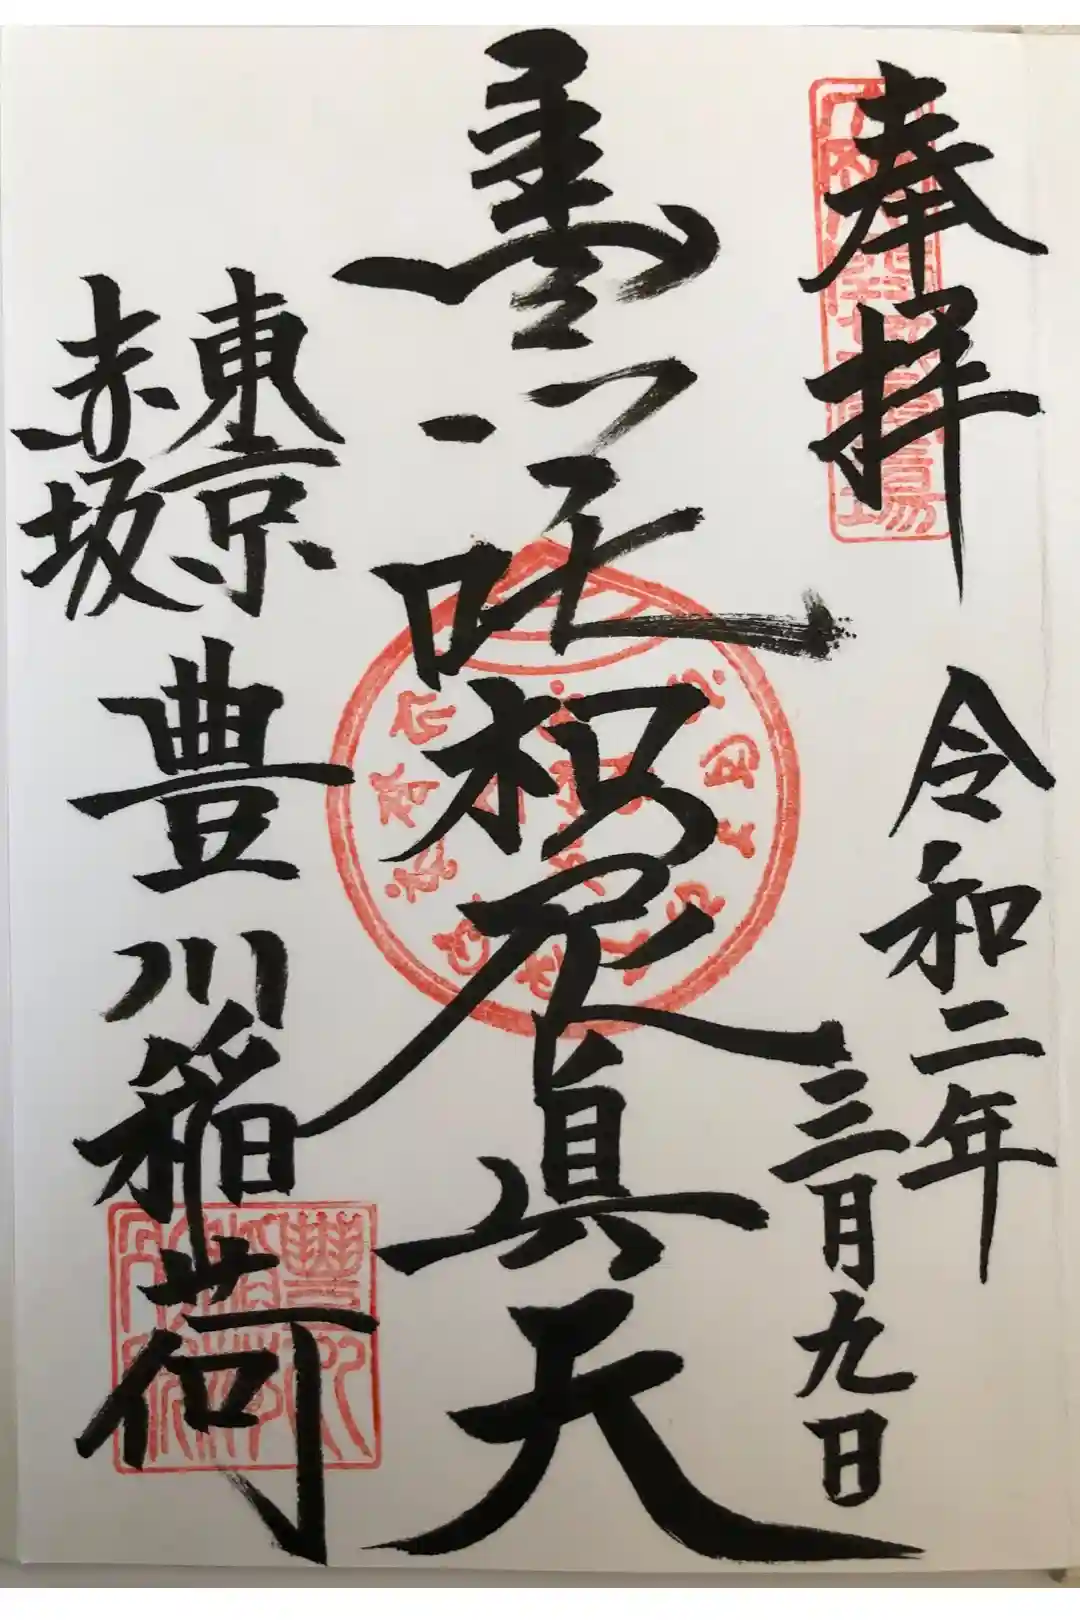 奉拝
令和二年
三月九日
吒枳尼真天
東京
赤坂
豊川稲荷